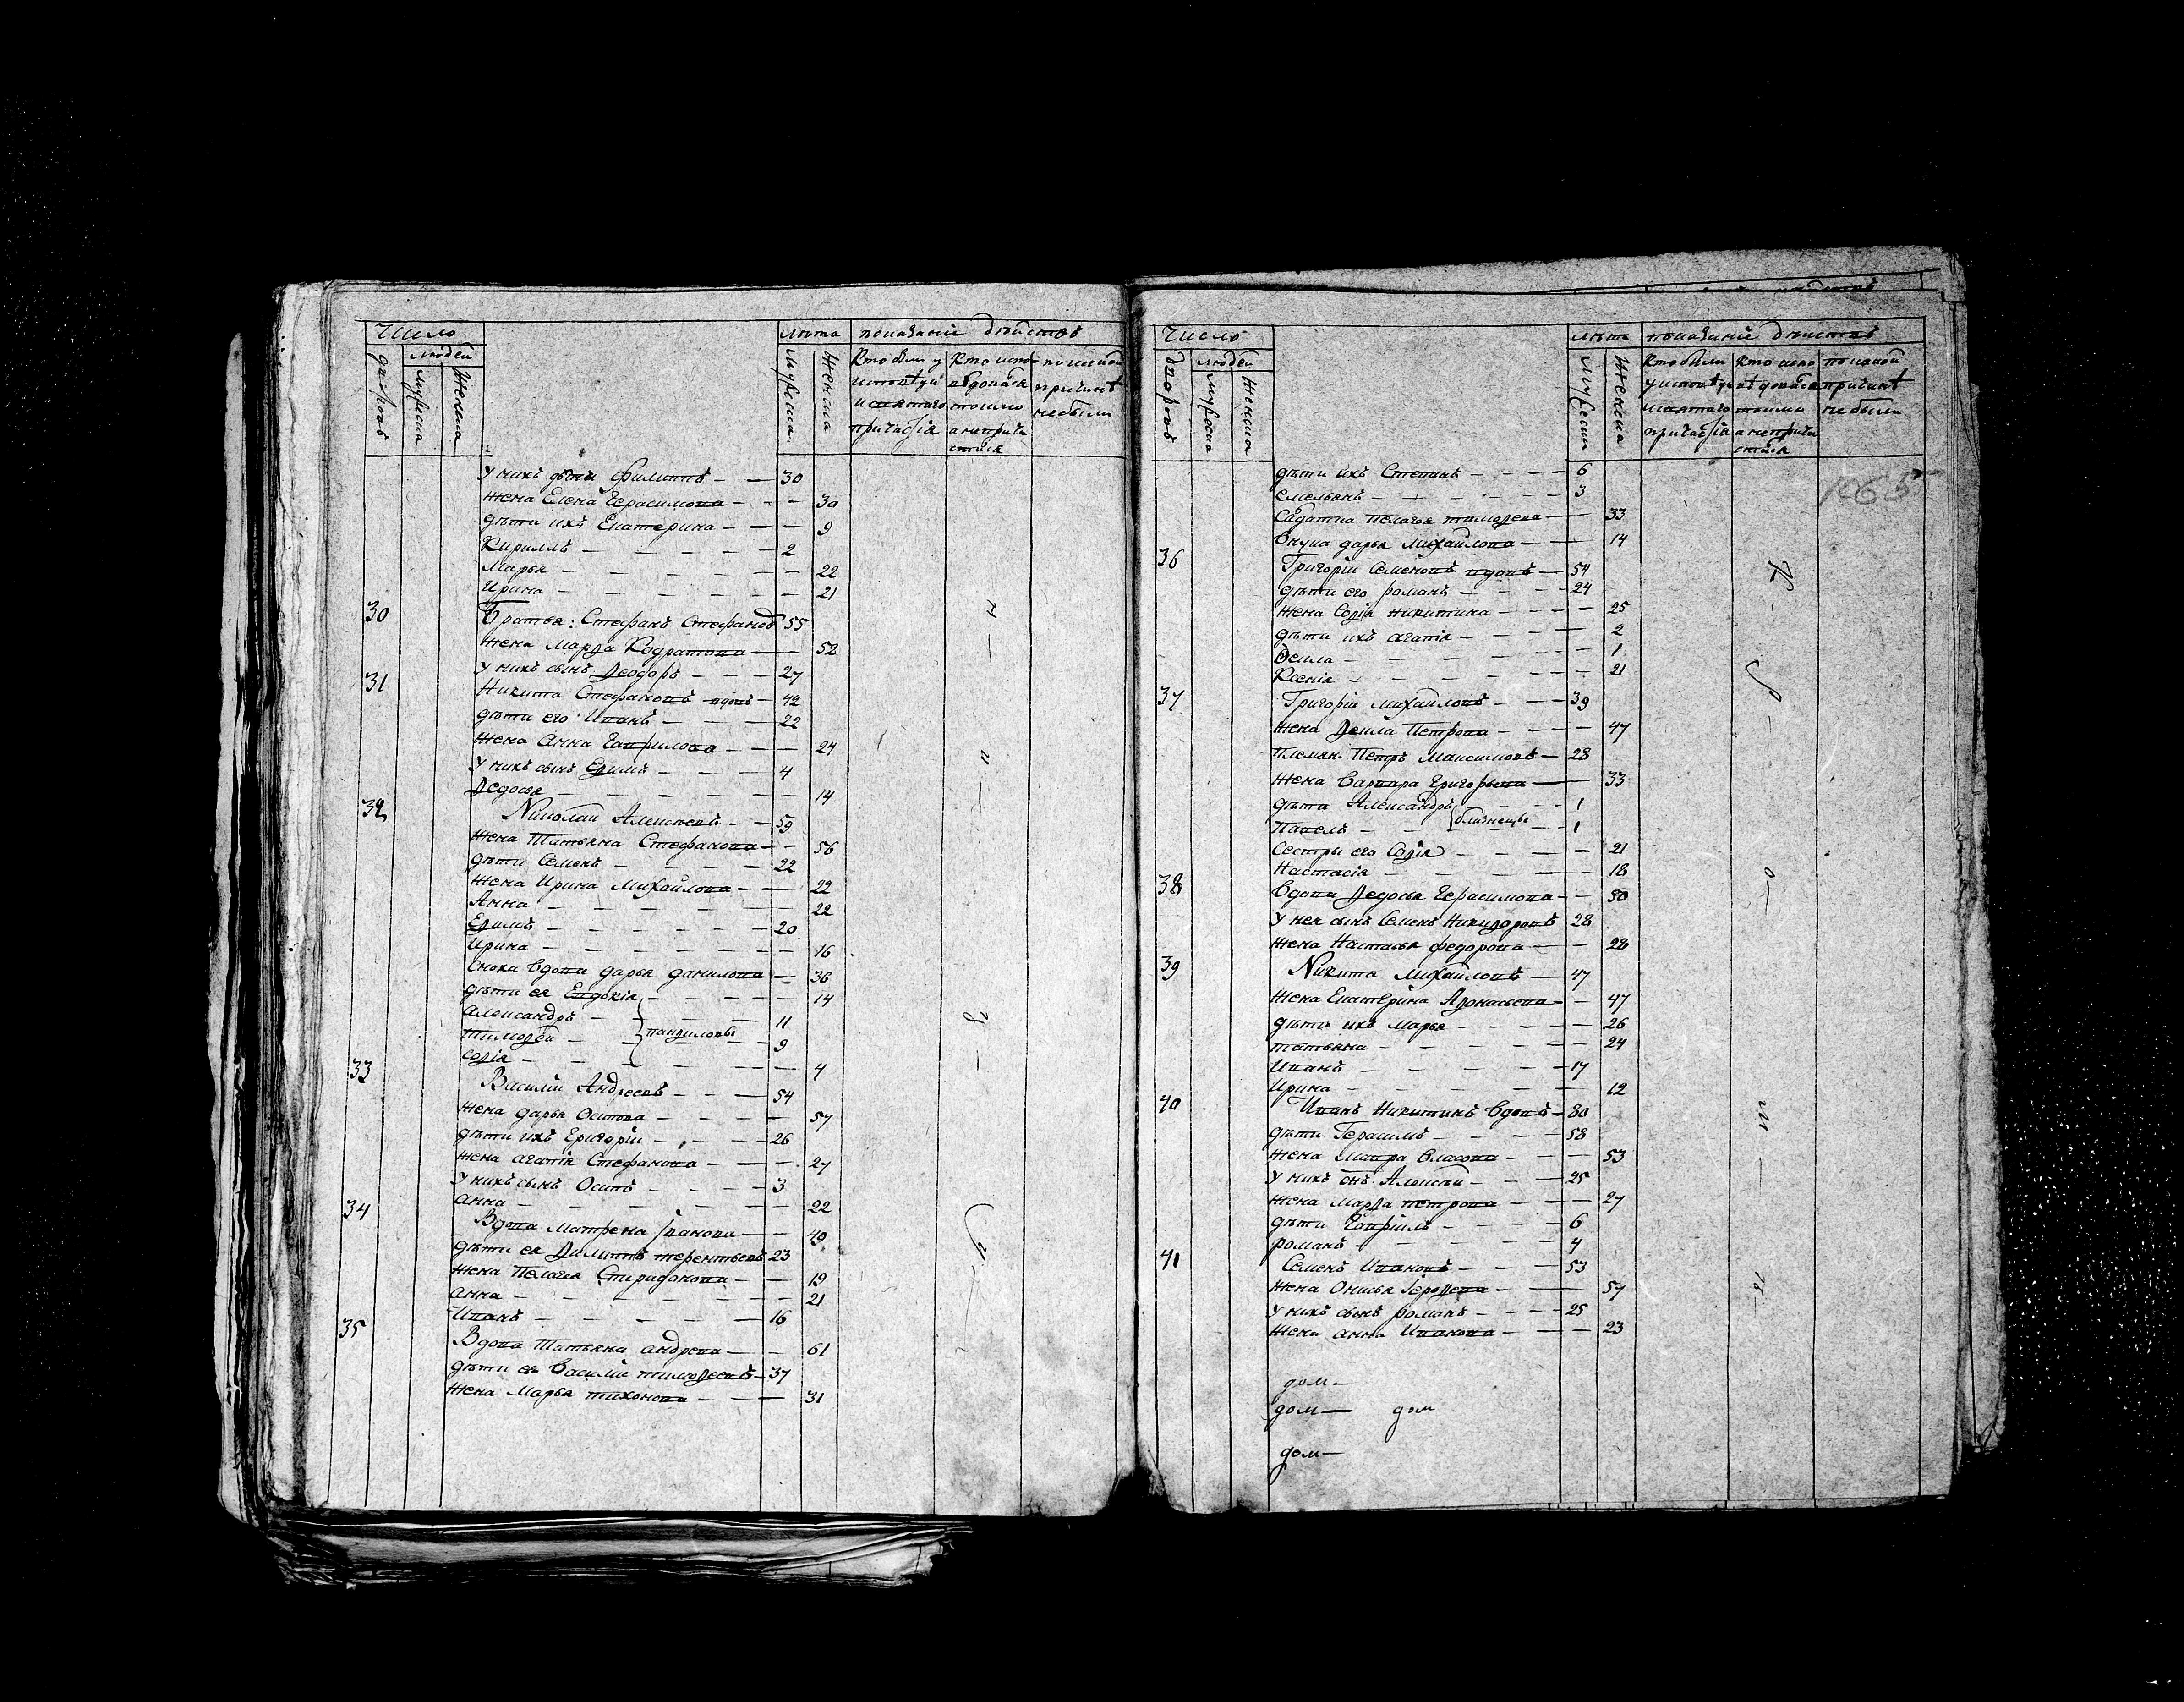 Число
людей
дворовъ
мужеска
женска
лѣта
мужеска
женска
показаніе дѣйствъ
Кто были у исповѣди и святаго причастія
Кто исповѣдовался токмо а не причастился
по какой причинѣ не были
У нихъ дѣти Филиппъ 30
жена Елена Герасимова 30
дѣти ихъ Екатерина 9
Кириллъ 2
Марья 22
Ирина 21
30 Братья: Стефанъ Стефановъ 55
жена Марѳа Кодратова 52
у нихъ сынъ Ѳеодоръ 27
31 Никита Стефановъ вдовъ 42
дѣти его Иванъ 22
жена Анна Гаврилова 24
У нихъ сынъ Еѳимъ 4
Ѳедосья 14
32 Николай Алексѣевъ 59
жена Татьяна Стефанова 56
дѣти Семенъ 22
жена Ирина Михайлова 22
Анна 22
Еѳимъ 20
Ирина 16
сноха вдова дарья данилова 36
дѣти ея Евдокія 14
Александръ 11
Тимоѳей } панѳиловы 9
Соѳія 4
33 Василій Андреевъ 54
жена дарья Осипова 57
дѣти ихъ Григорій 26
жена агапія Стефанова 27
У нихъ сынъ Осипъ 3
анна 22
34 Вдова Матрена Іванова 49
дѣти ея Ѳилиппъ терентьевъ 23
жена Пелагея Спиридонова 19
анна 21
Иванъ 16
35 Вдова Татьяна андреева 61
дѣти ея Василій тимоѳеевъ 37
жена Марья тихонова 31
Число
людей
дворовъ
мужеска
женска
лѣта
мужеска
женска
показаніе дѣйствъ
Кто были у исповѣди и святаго причастія
Кто исповѣдовался токмо а не причастился
по какой причинѣ не были
1065
дѣти ихъ Степанъ 6
емельянъ 3
Салдатка Пелагея тимоѳеева 33
внука дарья Михайлова 14
36 Григорій Семеновъ вдовъ 54
дѣти его романъ 24
жена Соѳія никитина 25
дѣти ихъ агапія 2
Ѳекла 1
Ксенія 21
37 Григорій Михайловъ 39
жена Ѳекла Петрова 47
Племян. Петръ Максимовъ 28
жена Варвара Григорьева 33
дѣти Александръ 1
Павелъ } близнецы 1
Сестры его Соѳія 21
Настасія 18
38 Вдова Ѳедосья Герасимова 50
У нея сынъ Семенъ Никиѳоровъ 28
жена Настасья федорова 28
39 Никита Михайловъ 47
жена Екатерина Аѳонасьева 47
дѣти ихъ Марья 26
татьяна 24
Иванъ 17
Ирина 12
40 Иванъ Никитинъ Вдовъ 80
дѣти Герасимъ 58
жена Мавра Власова 53
У нихъ снъ Алексѣй 25
жена Марѳа петрова 27
дѣти Гавріилъ 6
романъ 4
41 Семенъ Ивановъ 53
жена Онисья 57
у нихъ сынъ романъ 25
жена анна Иванова 23
дом
дом дом
дом